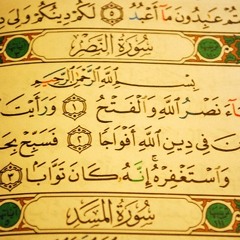 تُمْ عَٰبِدُونَ مَآ أَعْبُدُ ٥ لَكُمْ دِينُكُمْ وَلِيَ د
سُورَةُ النَّصْرِ
بِسْمِ اللَّهِ الرَّحْمَٰنِ الرَّحِيمِ
آءَ نَصْرُ اللَّهِ وَالْفَتْحُ ١ وَرَأَيْتَ
نَ فِي دِينِ اللَّهِ أَفْوَاجًا ٢ فَسَبِّحْ بِحَ
وَاسْتَغْفِرْهُ إِنَّهُ كَانَ تَوَّابًا ٣
سُورَةُ الْمَسَدِ